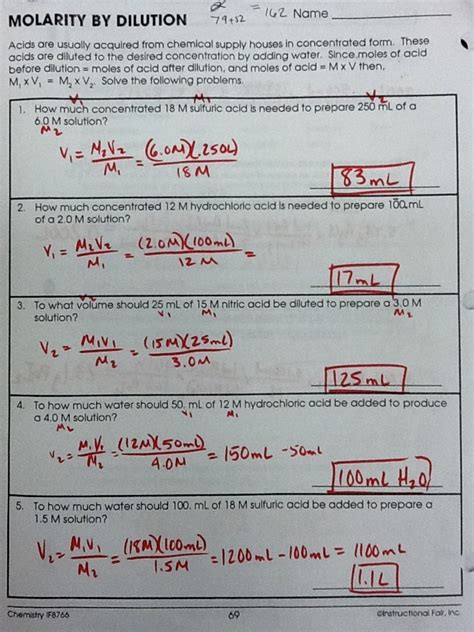 MOLARITY BY DILUTION
79+52 = 162 Name
Acids are usually acquired from chemical supply houses in concentrated form. These
acids are diluted to the desired concentration by adding water. Since moles of acid
before dilution = moles of acid after dilution, and moles of acid = M x V then,
M₁ x V₁ = M₂ x V₂. Solve the following problems.
V₁ M₁ V₂
1. How much concentrated 18 M sulfuric acid is needed to prepare 250 mL of a
6.0 M solution?
M₂
V₁ = M₂V₂/M₁ = (6.0M)(.250L)/18M
83mL
2. How much concentrated 12 M hydrochloric acid is needed to prepare 100 mL
of a 2.0 M solution?
V₁ = M₂V₂/M₁ = (2.0M)(100mL)/12M =
17mL
3. To what volume should 25 mL of 15 M nitric acid be diluted to prepare a 3.0 M
solution?
V₁ M₁ M₂
V₂ = M₁V₁/M₂ = (15M)(25mL)/3.0M
125mL
4. To how much water should 50. mL of 12 M hydrochloric acid be added to produce
a 4.0 M solution?
V₁ M₁
M₂
V₂ = M₁V₁/M₂ = (12M)(50mL)/4.0M = 150mL -50mL
100mL H₂O
5. To how much water should 100. mL of 18 M sulfuric acid be added to prepare a
1.5 M solution?
V₂ = M₁V₁/M₂ = (18M)(100mL)/1.5M = 1200mL - 100mL = 1100mL
1.1L
Chemistry IF8766
69
©Instructional Fair, Inc.